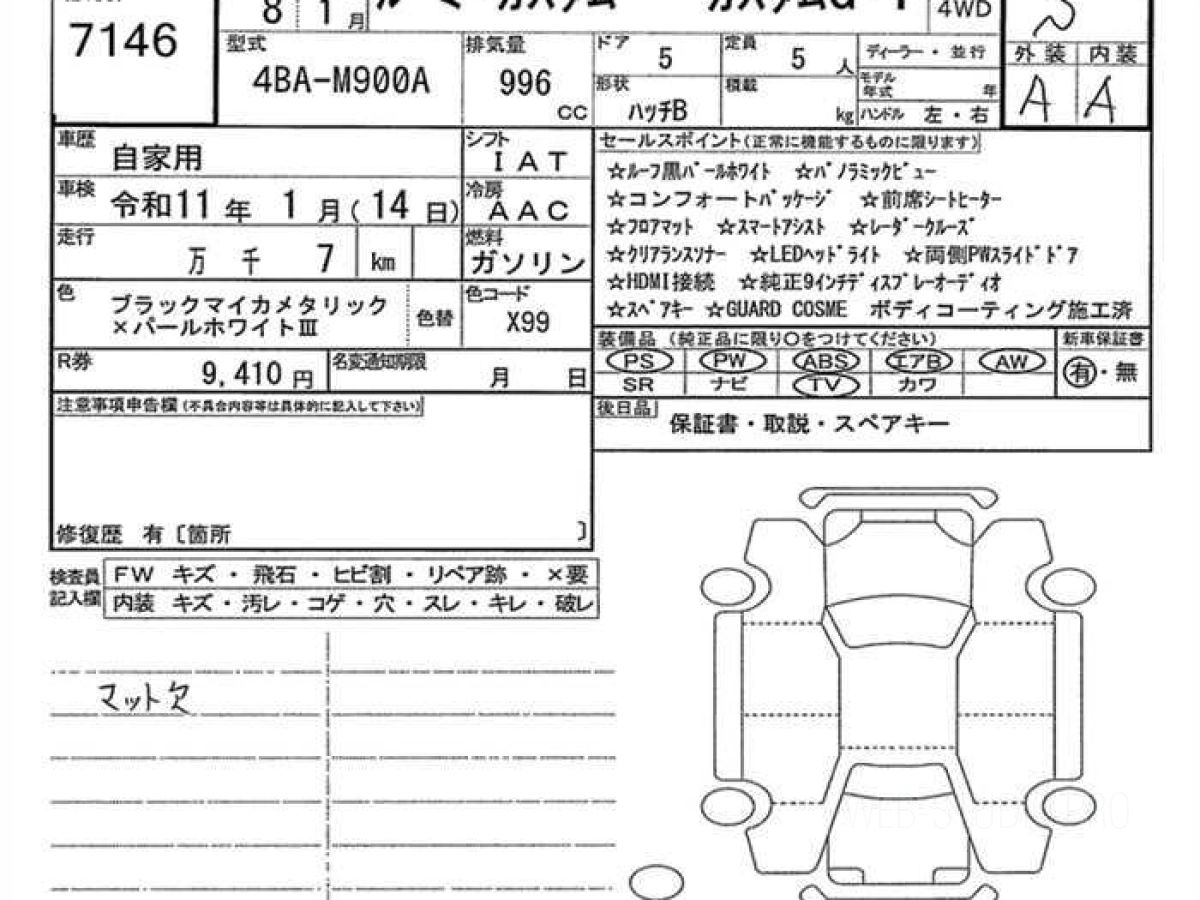 8 1 月
4WD
7146
型式 4BA-M900A
排気量 996 CC
ドア 5
定員 5 人
形状 ハッチB
積載 kg
ディーラー・並行
モデル年式 年
ハンドル 左・右
外装 内装
A A
車歴 自家用
シフト IAT
車検 令和11年 1月(14日)
冷房 AAC
走行 万 千 7 km
燃料 ガソリン
色 ブラックマイカメタリック
×パールホワイトⅢ
色替
色コード X99
R券 9,410 円
名変通知期限 月 日
セールスポイント(正常に機能するものに限ります)
☆ルーフ黒パールホワイト ☆パノラミックビュー
☆コンフォートパッケージ ☆前席シートヒーター
☆フロアマット ☆スマートアシスト ☆レーダークルーズ
☆クリアランスソナー ☆LEDヘッドライト ☆両側PWスライドドア
☆HDMI接続 ☆純正9インチディスプレーオーディオ
☆スペアキー ☆GUARD COSME ボディコーティング施工済
装備品 (純正品に限り○をつけてください)
PS PW ABS エアB AW
SR ナビ TV カワ
新車保証書
有・無
後日品 保証書・取説・スペアキー
注意事項申告欄(不具合内容等は具体的に記入して下さい)
修復歴 有〔箇所 〕
検査員記入欄
FW キズ・飛石・ヒビ割・リペア跡・×要
内装 キズ・汚レ・コゲ・穴・スレ・キレ・破レ
マット欠